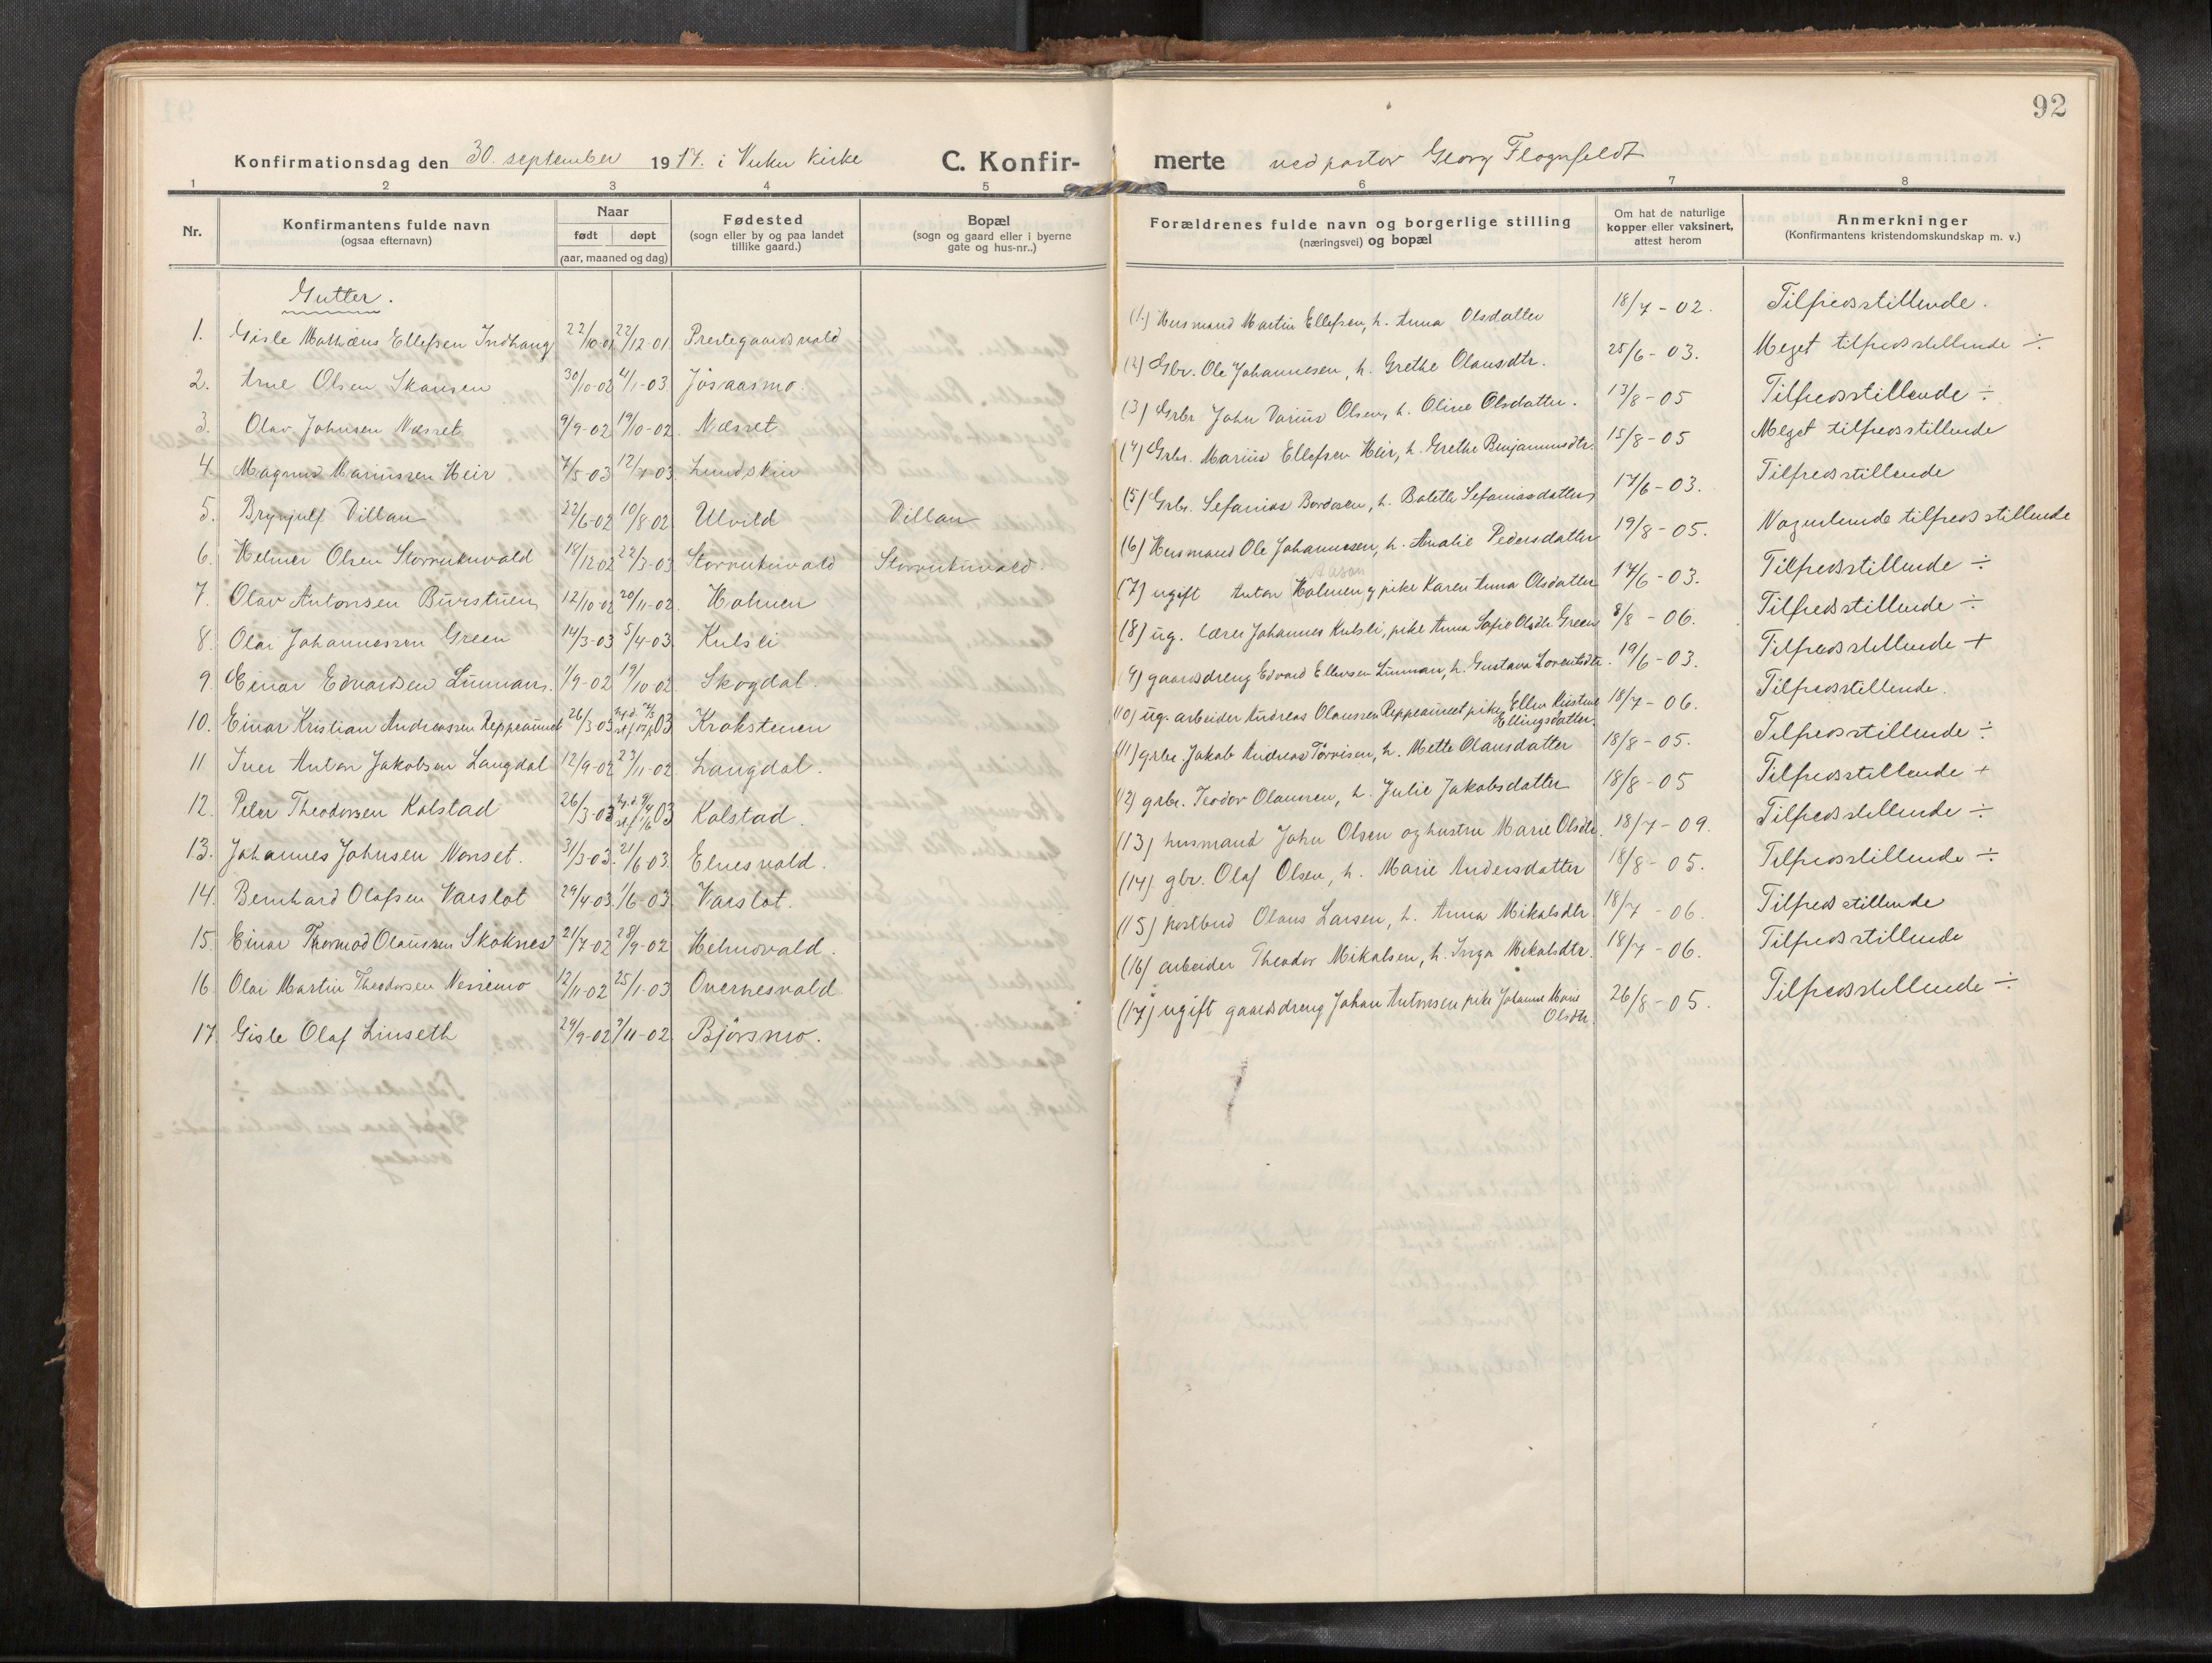 92
Konfirmationsdag den 30. september 1917. i Vuku Kirke C. Konfir- merte ved pastor Georg Flognfeldt
1 2 3 4 5 6 7 8
Nr. Konfirmantens fulde navn (ogsaa efternavn) Naar født døpt (aar, maaned og dag) Fødested (sogn eller by og paa landet tillike gaard.) Bopæl (sogn og gaard eller i byerne gate og hus-nr..) Forældrenes fulde navn og borgerlige stilling (næringsvei) og bopæl Om hat de naturlige kopper eller vaksinert, attest herom Anmerkninger (Konfirmantens kristendomskundskap m. v.)
Gutter.
1. Gisle Mathæus Ellefsen Indhaug 22/10-01 22/12-01. Prestegaardsvald (1.) Husmand Martin Ellefsen, h. Anna Olsdatter 18/7-02. Tilfredsstillende.
2. Arne Olsen Skansen 30/10-02 4/1-03 Jøsaasmo. (2) Gbr. Ole Johannesen, h. Grethe Olausdtr. 25/6-03. Meget tilfredsstillende ÷
3. Olav Johnsen Næsset 9/9-02 19/10-02. Næsset (3) Grbr John Darius Olsen, h. Oline Olsdatter. 13/8-05 Tilfredsstillende ÷
4. Magnus Mariussen Heir 7/5-03 12/7-03 Lundskin (4) Grbr. Marius Ellefsen Heir, h. Grethe Benjaminsdtr. 15/8-05 Meget tilfredsstillende
5. Brynjulf Dillan 22/6-02 10/8-02 Ulvild Dillan (5) Grbr. Sefanias Bordosen, h. Bolette Sefaniasdatter 17/6-03. Tilfredsstillende
6. Helmer Olsen Storvukuvald 18/12 02 22/3-03 Storvukuvald Storvukuvald. (6) Husmand Ole Johannesen, h. Analie Pedersdatter 19/8-05. Nogenlunde tilfredsstillende
7. Olav Antonsen Burstuen 12/10-02 20/11-02. Holmen (7) ugift Anton Holmen og pike Karen Anna Olsdatter 17/6-03. Tilfredsstillende ÷
8. Olai Johannessen Green 14/3-03 5/4-03 Kulsli (8) ug. lærer Johannes Kulsli, pike Anna Sofie Olsdtr Green 8/8-06. Tilfredsstillende ÷
9. Einar Edvardsen Linman. 1/9-02 19/10-02. Skogdal. (9) gaardsdreng Edvard Ellevsen Linman, h. Gustava Lorentsdtr. 19/6-03. Tilfredsstillende +
10. Einar Kristian Andreassen Reppeaunet 26/3 03 03 Krokstenen (10) ug. arbeider Andreas Olaussen Reppeaunet pike Ellen Kristine Ellingsdatter. 18/7-06. Tilfredsstillende.
11 Iver Anton Jakobsen Langdal 12/9-02 23/11-02. Langdal. (11) grbr. Jakob Andreas Torrisen, h. Mette Olausdatter 18/8-05. Tilfredsstillende ÷
12. Peter Theodorsen Kolstad 26/3-03 03 Kolstad. (12) grbr. Teodor Olaussen, h. Julie Jakobsdatter 18/8-05 Tilfredsstillende +
13. Johannes Johnsen Nonset. 31/3-03. 21/6 03 Elnesvald. (13) husmand John Olsen og hustru Marie Olsdtr. 18/7-09. Tilfredsstillende ÷
14. Bernhard Olafsen Varslot 29/4-03 1/6-03 Varslot. (14) gbr. Olaf Olsen, h. Marie Andersdatter 18/8-05. Tilfredsstillende ÷
15. Einar Thormod Olaussen Skoknes 21/7-02 28/9-02 Helmovald. (15) postbud Olaus Larsen, h. Anna Mikalsdtr. 18/7-06. Tilfredsstillende
16. Olai Martin Theodorsen Nessemo 12/11-02 25/1-03 Overnesvald. (16) arbeider Theodor Mikalsen, h. Inga Mikalsdtr. 18/7-06. Tilfredsstillende
17. Gisle Olaf Linseth 29/9-02 9/11-02. Bjørsmo. (17) ugift gaardsdreng Johan Antonsen pike Johanna Marie Olsdtr. 26/8-05. Tilfredsstillende ÷